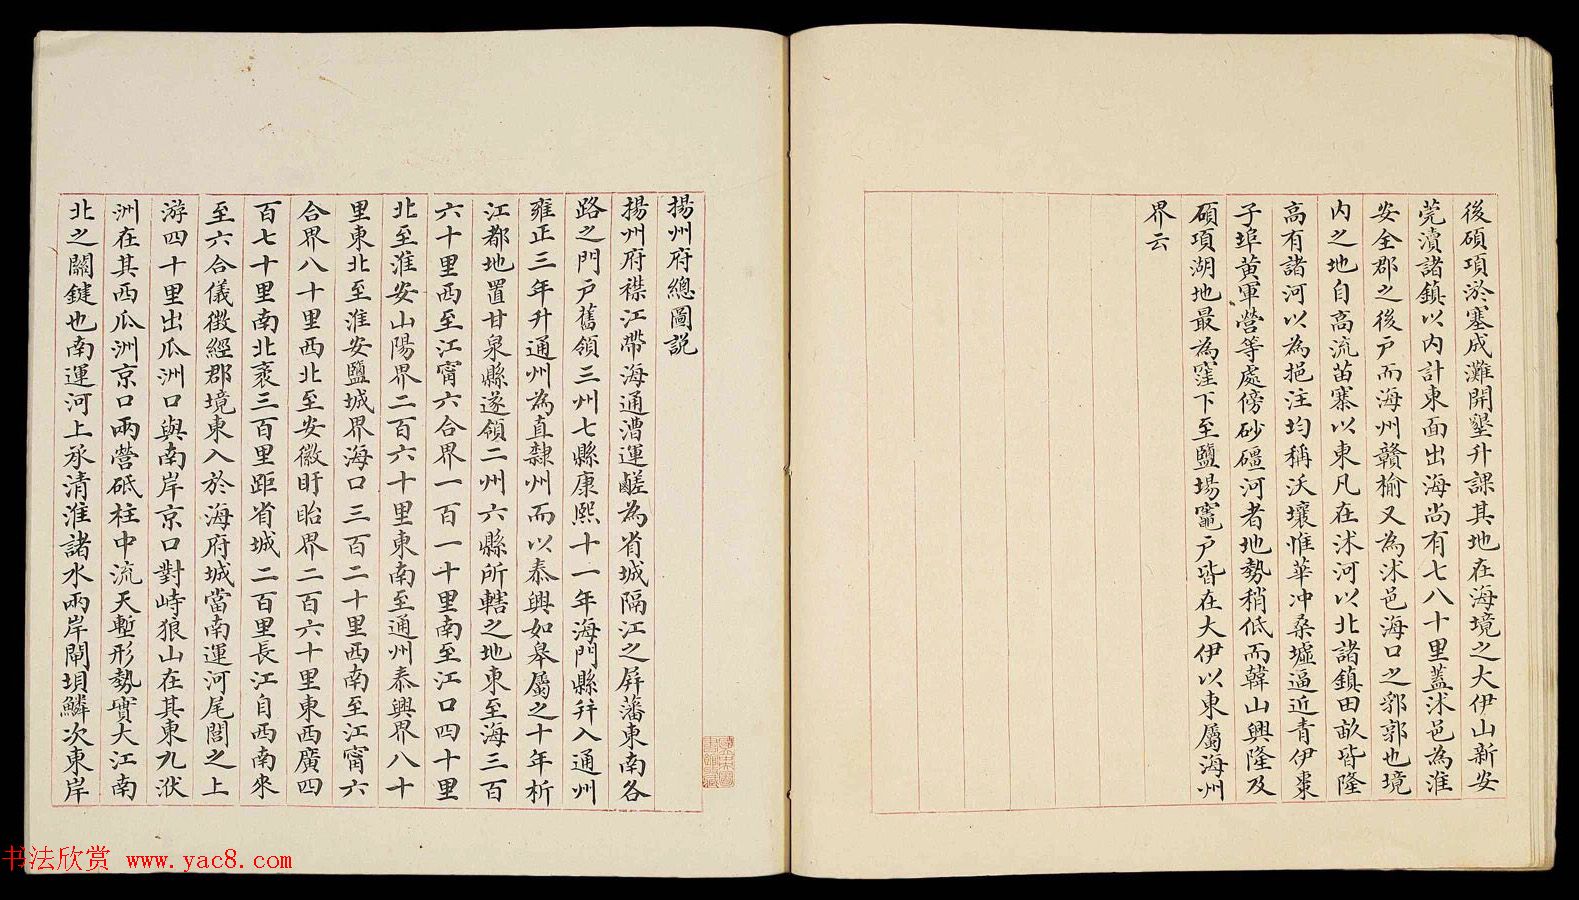 後碩項淤塞成灘開墾升課其地在海境之大伊山新安
莞瀆諸鎮以内計東面出海尚有七八十里蓋沭邑為淮
安全郡之後戸而海州贛榆又為沭邑海口之郛郭也境
内之地自高流苗寨以東凡在沭河以北諸鎮田畝皆隆
高有諸河以為挹注均稱沃壤惟華冲桑墟逼近青伊棗
子埠黄軍營等處傍砂礓河者地勢稍低而韓山興隆及
碩項湖地最為窪下至鹽場竈戸皆在大伊以東屬海州
界云
揚州府總圖説
揚州府襟江帶海通漕運鹺為省城隔江之屏藩東南各
路之門戸舊領三州七縣康熙十一年海門縣并入通州
雍正三年升通州為直隸州而以泰興如皋屬之十年析
江都地置甘泉縣遂領二州六縣所轄之地東至海三百
六十里西至江甯六合界一百一十里南至江口四十里
北至淮安山陽界二百六十里東南至通州泰興界八十
里東北至淮安鹽城界海口三百二十里西南至江甯六
合界八十里西北至安徽盱眙界二百六十里東西廣四
百七十里南北袤三百里距省城二百里長江自西南來
至六合儀徵經郡境東入於海府城當南運河尾閭之上
游四十里出瓜洲口與南岸京口對峙狼山在其東九洑
洲在其西瓜洲京口兩營砥柱中流天塹形勢實大江南
北之關鍵也南運河上承清淮諸水兩岸閘壩鱗次東岸
书法欣赏 www.yac8.com